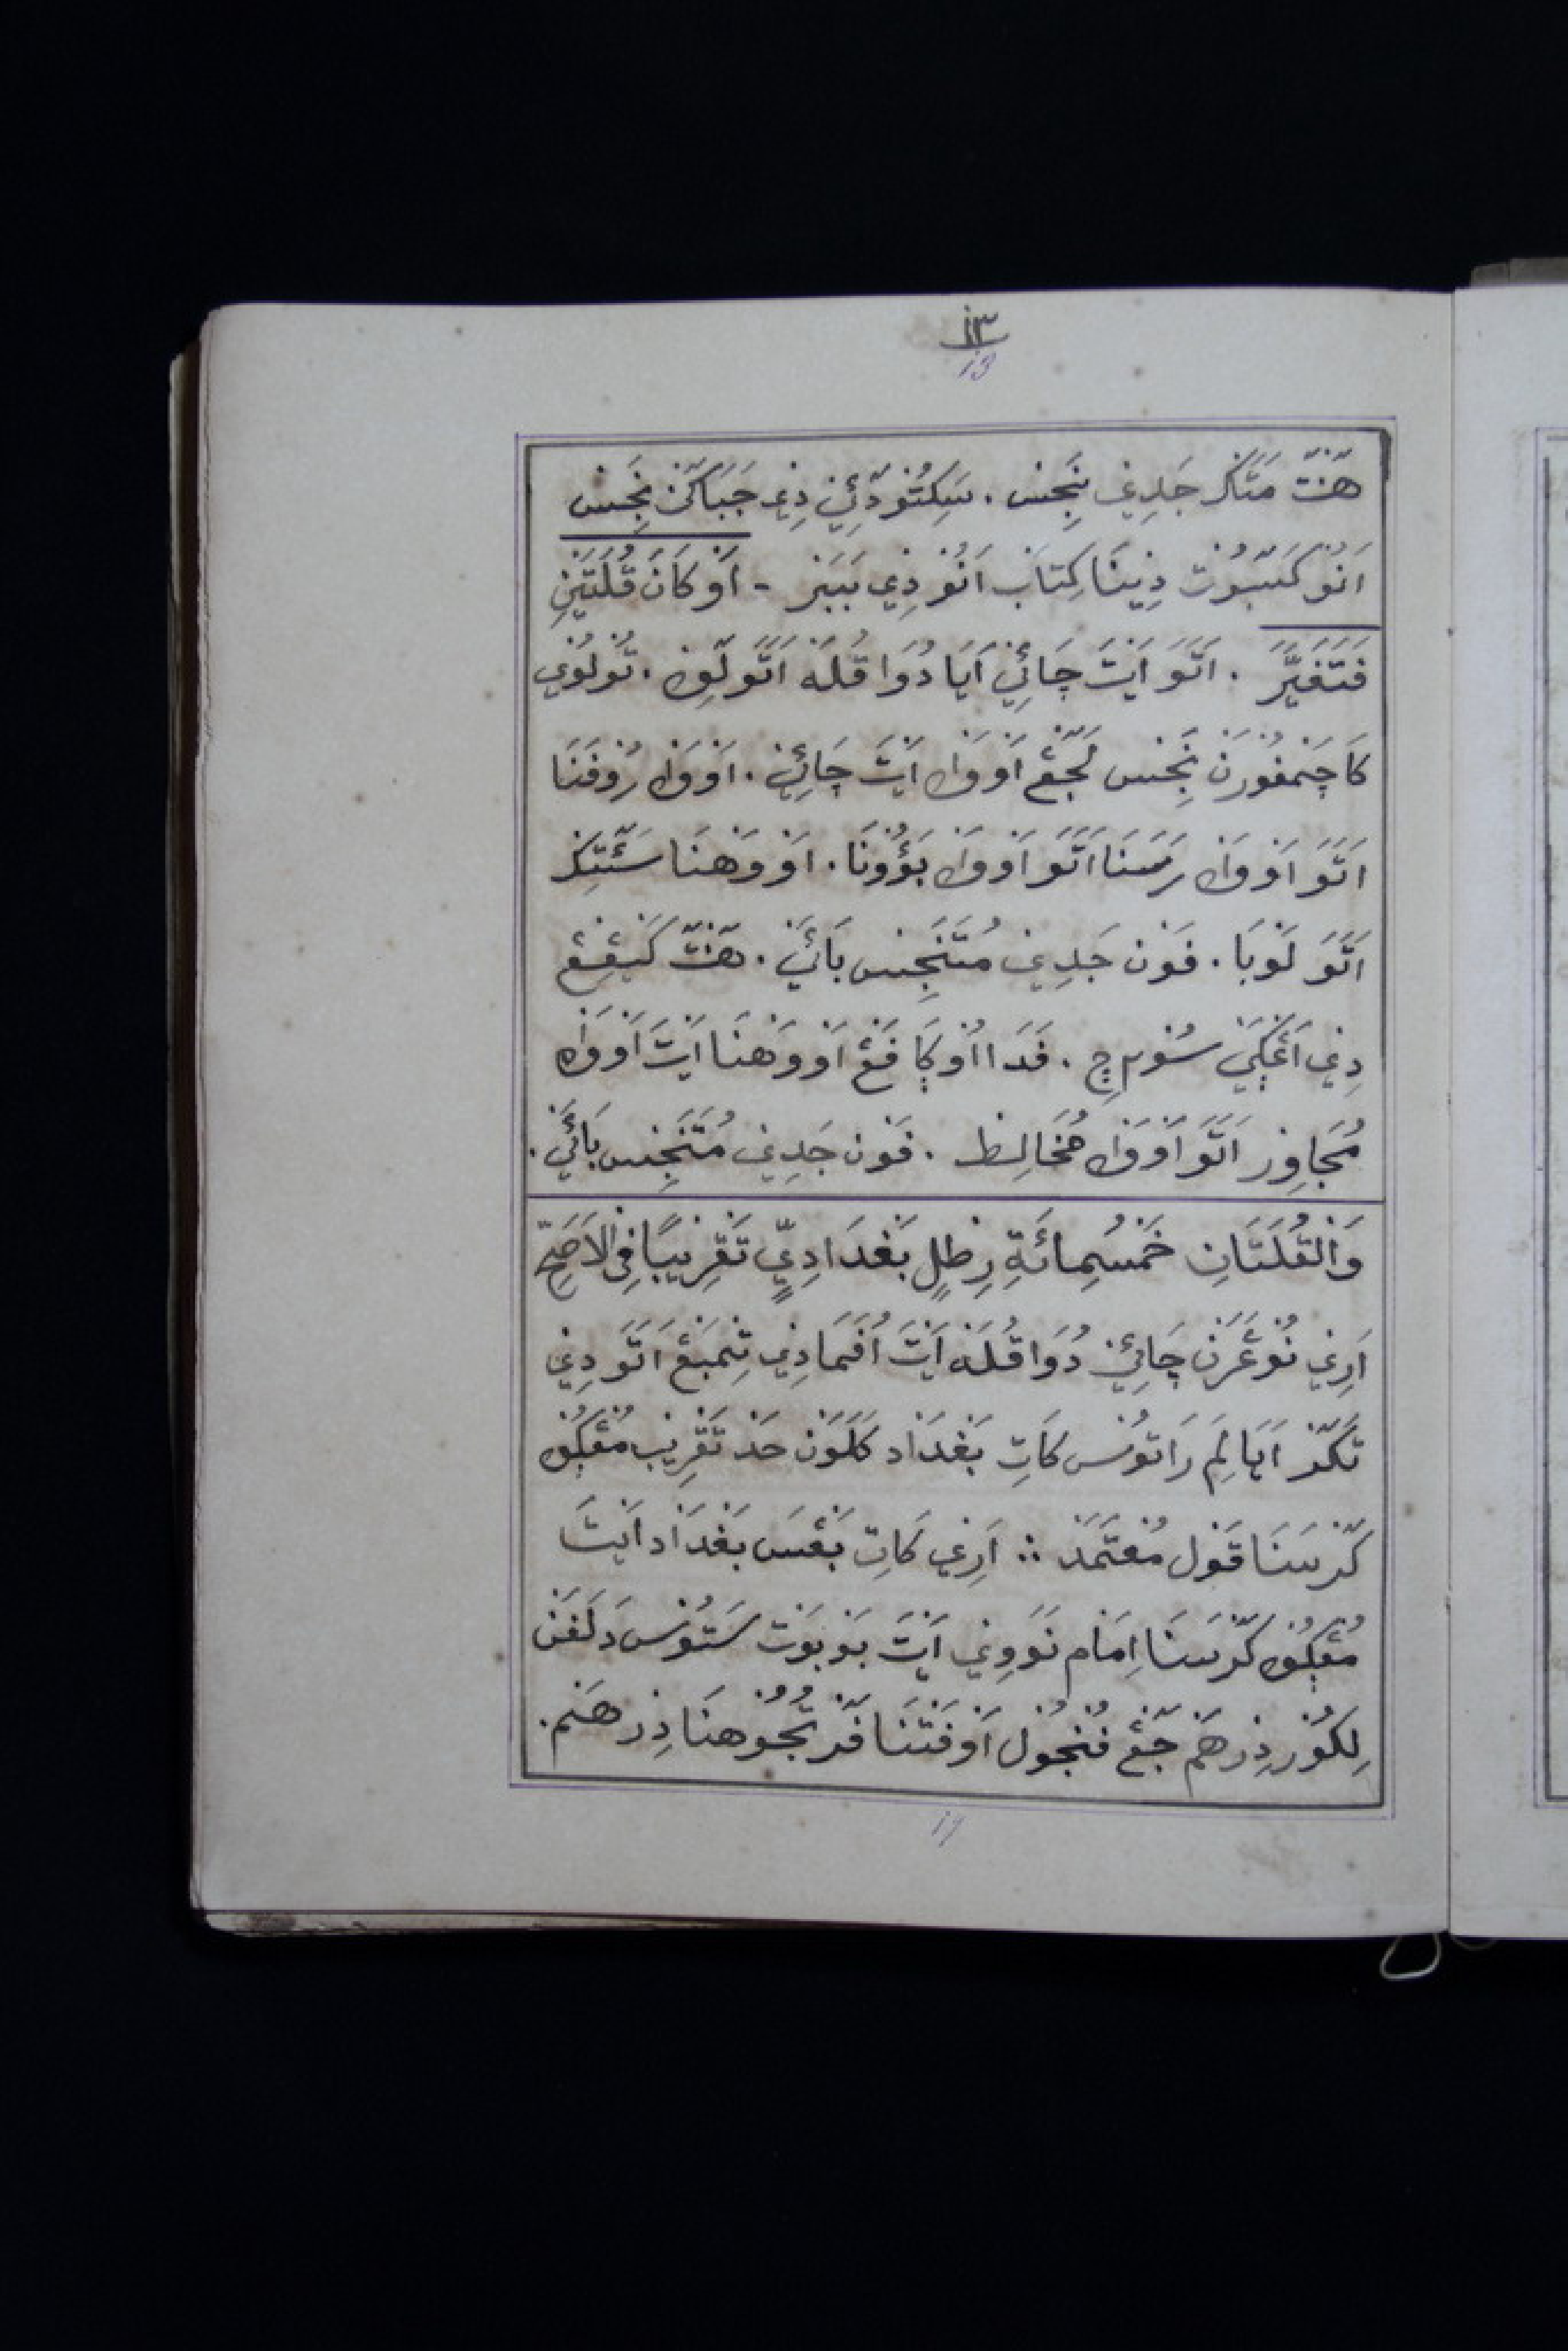 ١٣
13
هٓنْتٓ مَتَّكَرْ جَلِدِيْ نَجِسْ . سَكِتُنُوْ دٓئِيْ دِيْ جَبَاكٓنْ نَجِسْ
اَنُوْ كَسٓبُوْتْ دِيْنَا كِتَابْ اَنُوْ دِيْ بَبَرْ - اَوْ كَانَ قُلَّتَيْنِ
فَتَغَيَّرَ . اَتَوَ اَيْتَ چَائِيْ اَيَا دُوَا قُلَّهْ اَتَوَ لٓوِهْ . تُوْلُوْيْ
كَاچَمْفُوْرَنْ نَجِسْ لَجٓڠْ اَوْوَاهْ اَيْتَ چَائِيْ . اَوْوَاهْ رُوْفَنَا
اَتَوَ اَوْوَاهْ رَسَنَا اَتَوَ اَوْوَاهْ بَوُوْنَا . اَوْوَهْنَا سَئٓتِكْ
اَتَوَ لَوْبَا . فَوْنْ جَلِدِيْ مُتَنَجِّسْ بَائَيْ . هٓنْتٓ كَيْڠِيْڠْ
دِيْ اَڠْڮَيْ سُوْچِ . فَدَا اُوْڮَا فَڠْ اَوْوَهْنَا اَيْتَ اَوْوَاهْ
مُجَاوِرْ اَتَوَ اَوْوَاهْ مُخَالِطْ . فَوْنْ جَدِيْ مُتَنَجِّسْ بَائَيْ .
وَالْقُلَّتَانِ خَمْسُمِائَةِ رِطْلٍ بَغْدَادِيٍّ تَقْرِيْبًا فِى الْاَصَحِّ
اَرِيْ نُوْڠَرَنْ چَائِيْ دُوَا قُلَّهْ اَيْتَ اُفَمَا دِيْ تِمْبَڠْ اَتَوَ دِيْ
تَكٓرْ اَيَا لِمَ رَاتُوْسْ كَاتِ بَغْدَادْ كَلَوَنْ حَدْ تَقْرِيْبْ مُڠْڮُهْ
كٓرْسَنَا قَوْلْ مُعْتَمَدْ ؞ اَرِيْ كَاتِ بَڠْسَ بَغْدَادْ اَيْتَ
مُڠْڮُهْ كٓرْسَنَا اِمَامْ نَوَوِيْ اَيْتَ بَوْبَوْتْ سَتُوْسْ دَلَفَنْ
لِكُوْرْ دِرْهَمْ جٓڠْ فُنْجُوْلْ اَوْفَتْنَا فٓرْ تُجُوْهْنَا دِرْهَمْ .